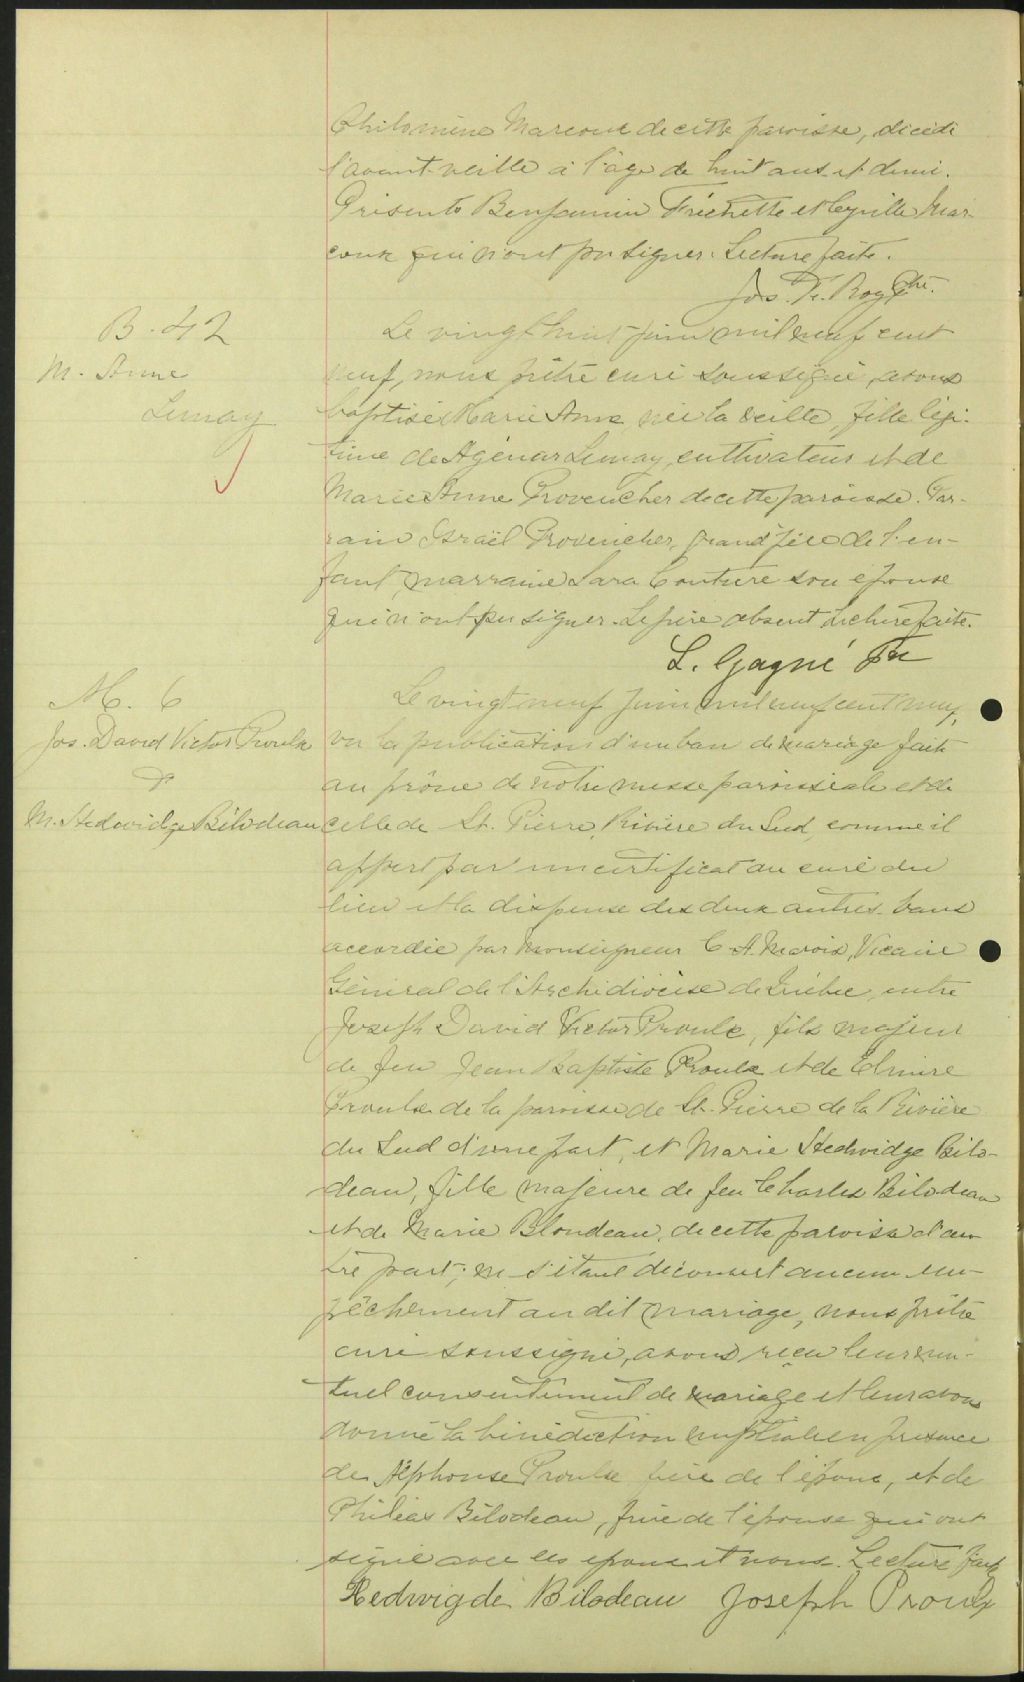 Philomène Marcoux de cette paroisse, décédé
l'avant-veille à l'âge de huit ans et demi.
Présents Benjamin Fréchette et Cyrille Mar-
coux qui n'ont pu signer. Lecture faite.
Jos. Ptre.
B. 42
M. Anne
Lemay
Le vingt huit juin mil neuf cent
neuf, nous prêtre curé soussigné, avons
baptisé Marie Anne, née la veille, fille légi-
time de Agénor Lemay, cultivateur et de
Marie Anne Provencher de cette paroisse. Par-
rain Israël Provencher, grand'père de l'en-
fant, marraine Sara Couture son épouse
qui n'ont pu signer. Le père absent. Lecture faite.
L. Gagné Ptre
M. 6
Jos. David Victor Proulx
&
M. Hedwidge Bilodeau
Le vingt neuf juin mil neuf cent neuf,
vu la publication d'un ban de mariage faite
au prône de notre messe paroissiale et de
celle de St. Pierre, Rivière du Sud, comme il
appert par un certificat du curé du
lieu et la dispense des deux autres bans
accordée par Monseigneur C. A. Marois, Vicaire
Général de l'Archidiocèse de Québec, entre
Joseph David Victor Proulx, fils majeur
de feu Jean Baptiste Proulx et de Elmire
Proulx de la paroisse de St. Pierre de la Rivière
du Sud d'une part, et Marie Hedwidge Bilo-
deau, fille majeure de feu Charles Bilodeau
et de Marie Blondeau, de cette paroisse d'au-
tre part; ne s'étant découvert aucun em-
pêchement au dit mariage, nous prêtre
curé soussigné, avons reçu leur mu-
tuel consentement de mariage et leur avons
donné la bénédiction nuptiale en présence
de Alphonse Proulx frère de l'époux, et de
Philéas Bilodeau, frère de l'épouse qui ont
signé avec les époux et nous. Lecture faite
Hedwigde Bilodeau Joseph Proulx